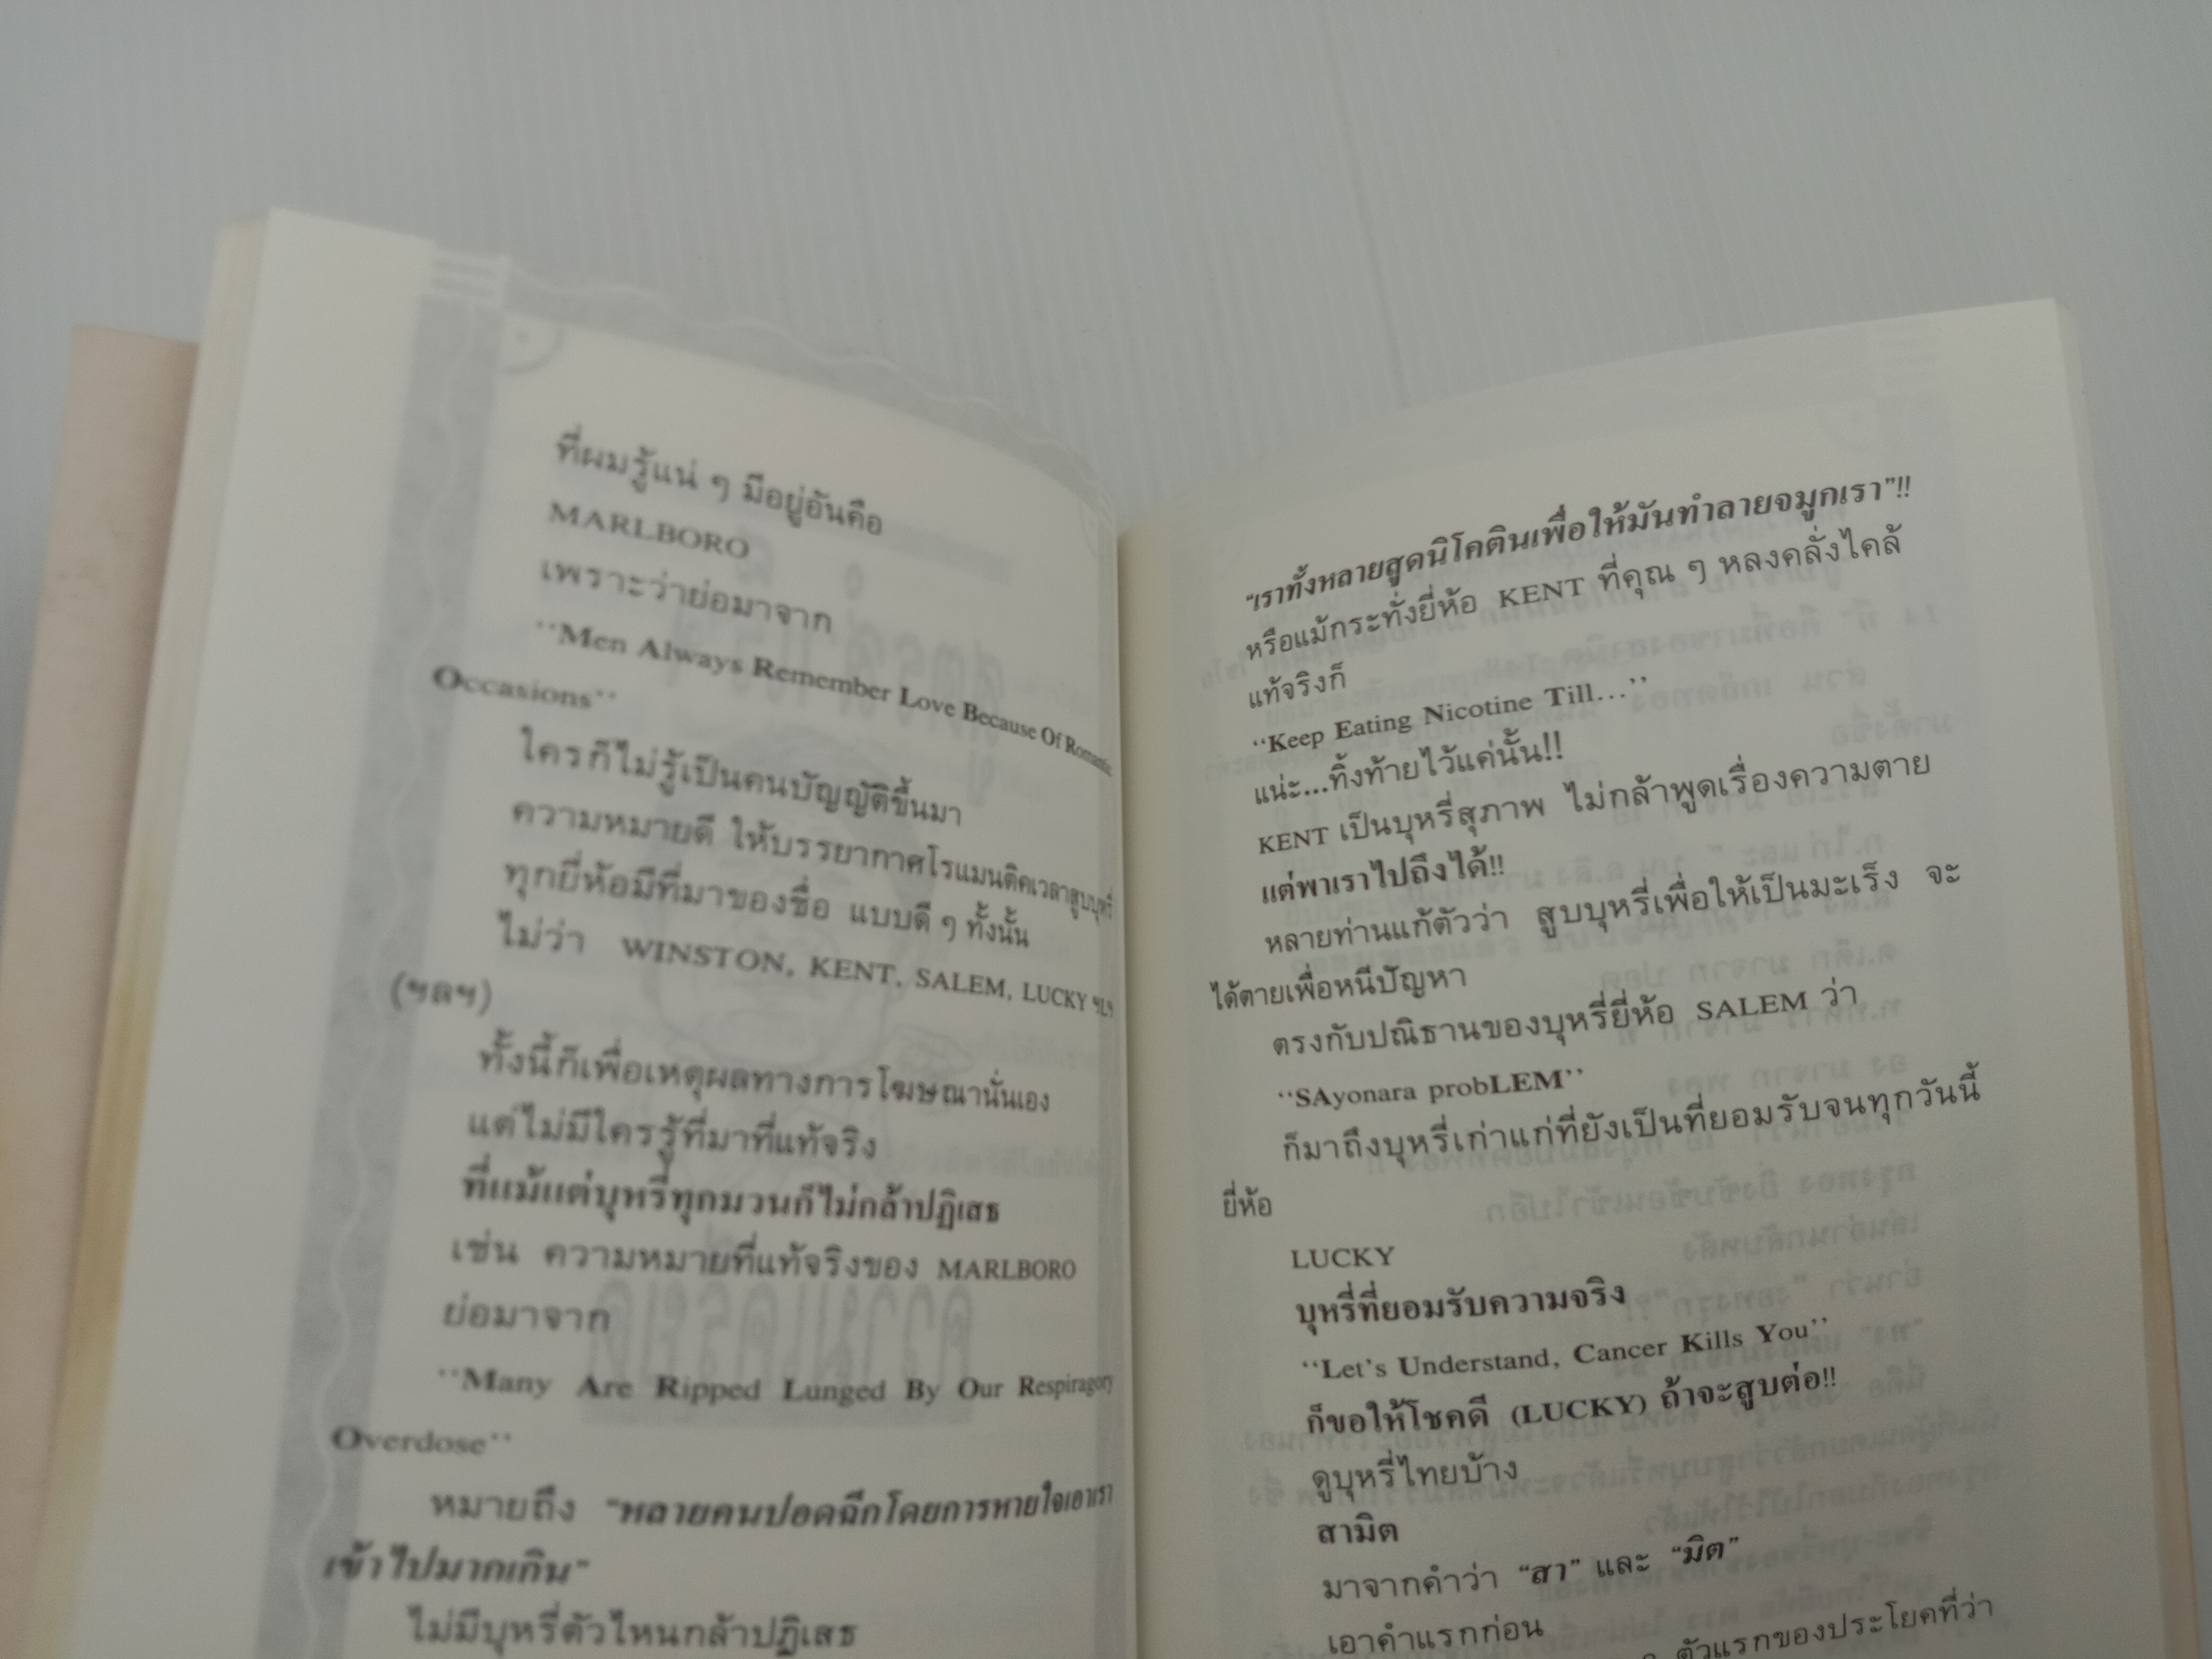 ที่ผมรู้แน่ ๆ มีอยู่อันคือ
MARLBORO
เพราะว่าย่อมาจาก
“Men Always Remember Love Because Of Romantic
Occasions”
ใครก็ไม่รู้เป็นคนบัญญัติขึ้นมา
ความหมายดี ให้บรรยากาศโรแมนติคเวลาสูบบุหรี่
ทุกยี่ห้อมีที่มาของชื่อ แบบดี ๆ ทั้งนั้น
ไม่ว่า WINSTON, KENT, SALEM, LUCKY ฯLฯ
(ฯลฯ)
ทั้งนี้ก็เพื่อเหตุผลทางการโฆษณานั่นเอง
แต่ไม่มีใครรู้ที่มาที่แท้จริง
ที่แม้แต่บุหรี่ทุกมวนก็ไม่กล้าปฏิเสธ
เช่น ความหมายที่แท้จริงของ MARLBORO
ย่อมาจาก
“Many Are Ripped Lunged By Our Respiragory
Overdose”
หมายถึง “หลายคนปอดฉีกโดยการหายใจเอาเรา
เข้าไปมากเกิน”
ไม่มีบุหรี่ตัวไหนกล้าปฏิเสธ
“เราทั้งหลายสูดนิโคตินเพื่อให้มันทำลายจมูกเรา”!!
หรือแม้กระทั่งยี่ห้อ KENT ที่คุณ ๆ หลงคลั่งไคล้
แท้จริงก็
“Keep Eating Nicotine Till...”
แน่ะ...ทิ้งท้ายไว้แค่นั้น!!
KENT เป็นบุหรี่สุภาพ ไม่กล้าพูดเรื่องความตาย
แต่พาเราไปถึงได้!!
หลายท่านแก้ตัวว่า สูบบุหรี่เพื่อให้เป็นมะเร็ง จะ
ได้ตายเพื่อหนีปัญหา
ตรงกับปณิธานของบุหรี่ยี่ห้อ SALEM ว่า
“SAyonara probLEM”
ก็มาถึงบุหรี่เก่าแก่ที่ยังเป็นที่ยอมรับจนทุกวันนี้
ยี่ห้อ
LUCKY
บุหรี่ที่ยอมรับความจริง
“Let's Understand, Cancer Kills You”
ก็ขอให้โชคดี (LUCKY) ถ้าจะสูบต่อ!!
ดูบุหรี่ไทยบ้าง
สามิต
มาจากคำว่า “สา” และ “มิต”
เอาคำแรกก่อน
ตัวแรกของประโยคที่ว่า